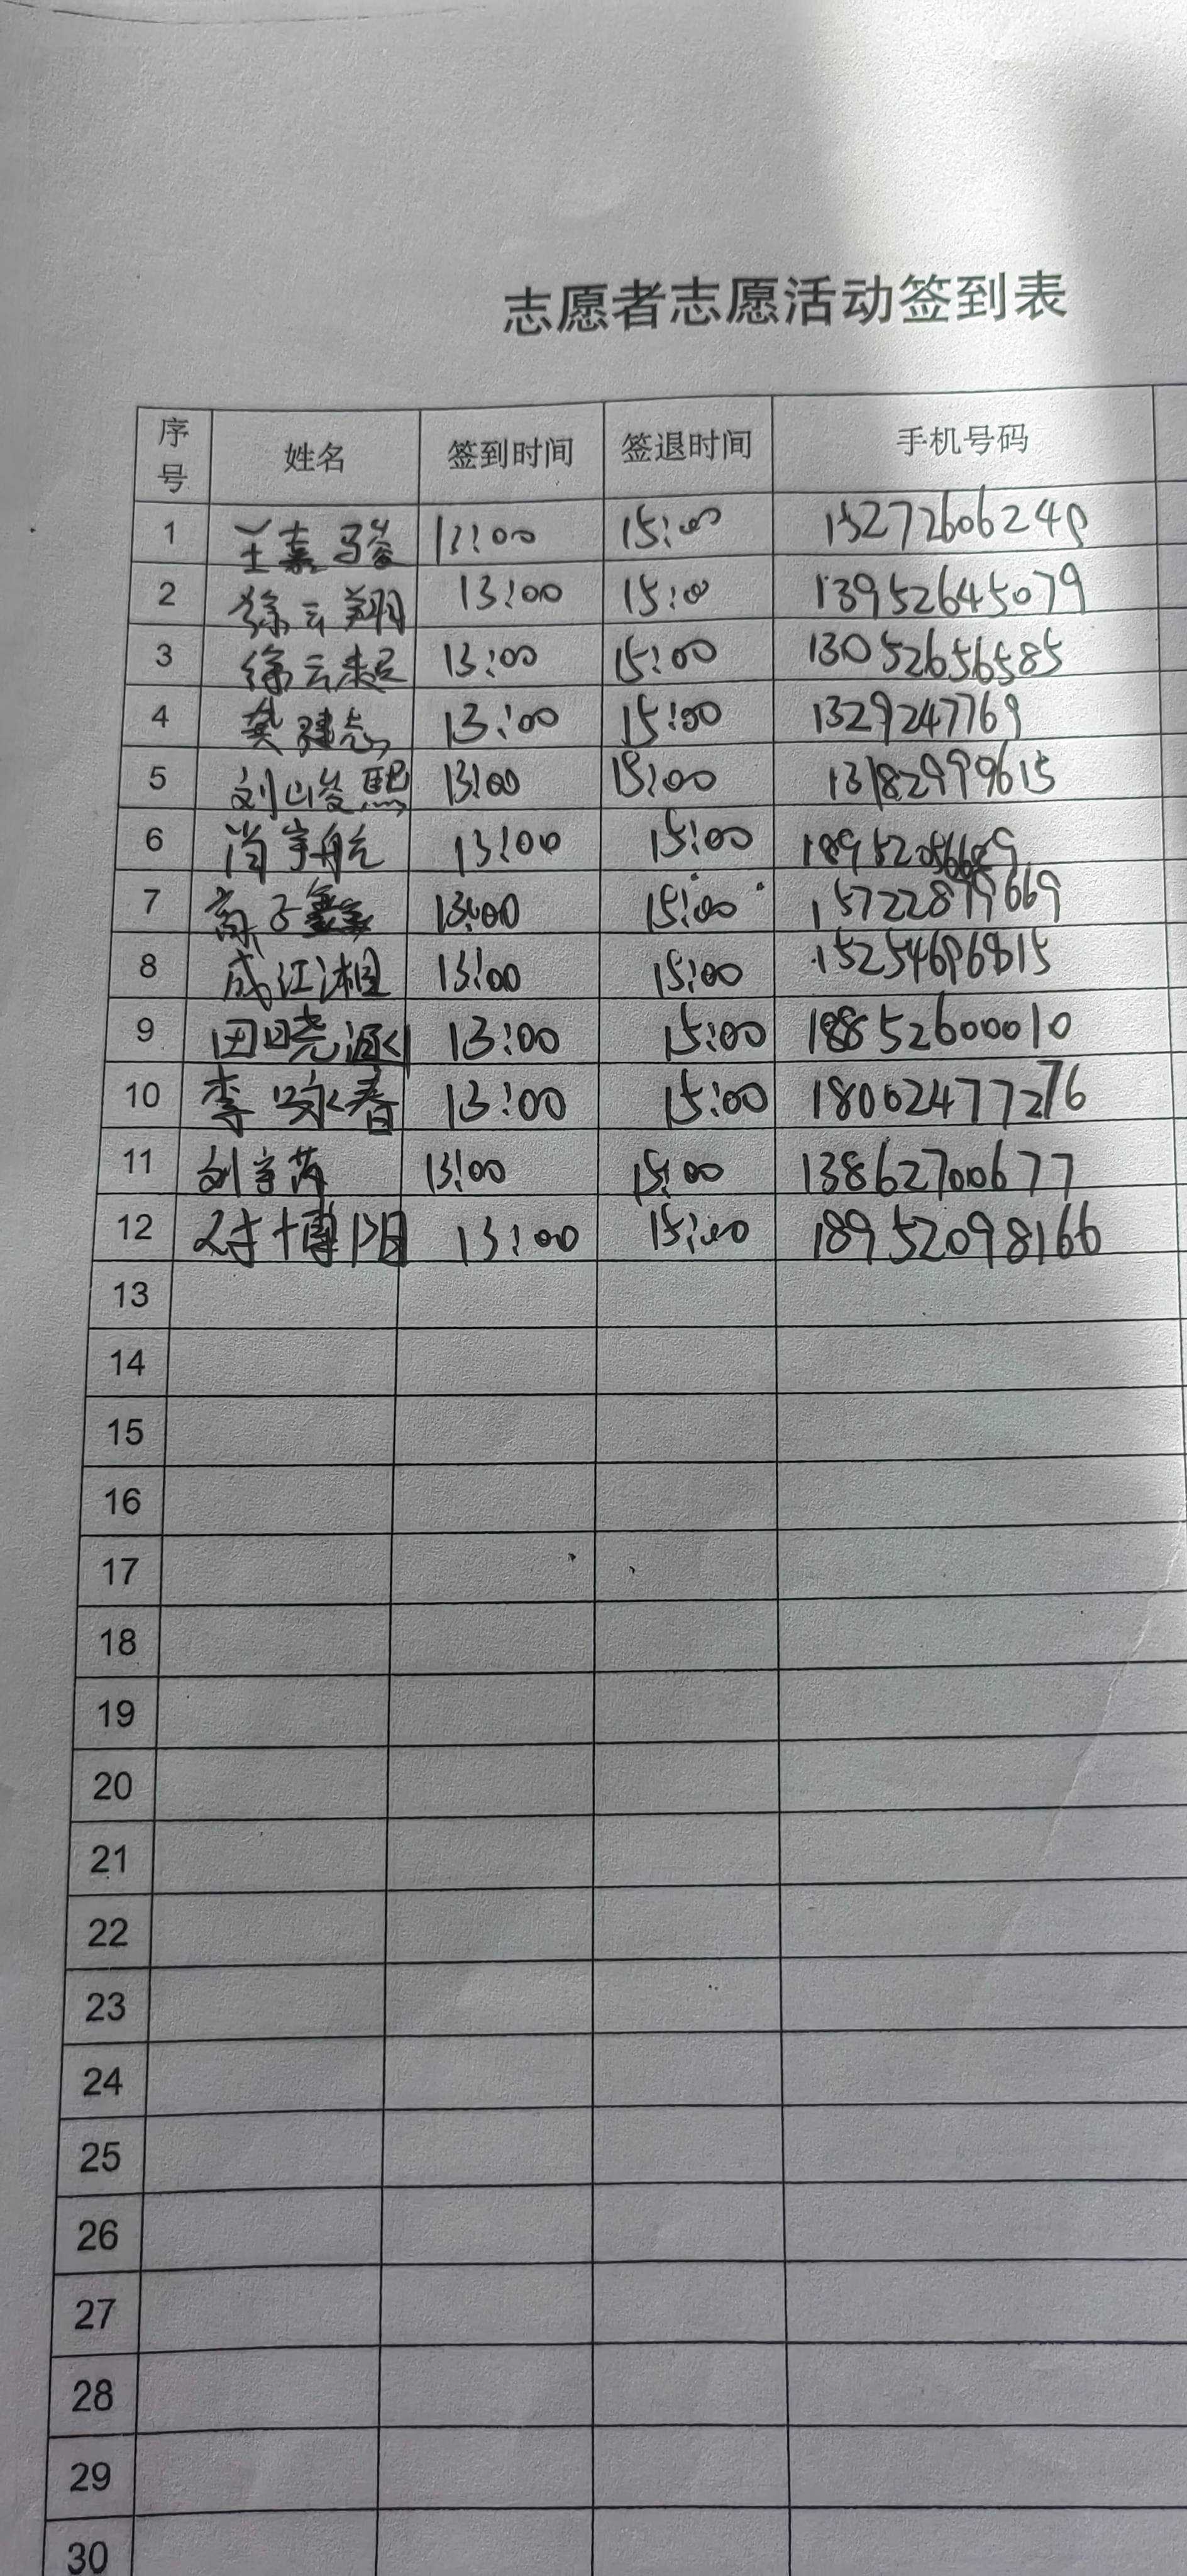 志愿者志愿活动签到表
序号 姓名 签到时间 签退时间 手机号码
1 王嘉骏 13:00 15:00
2 徐云翔 13:00 15:00 13952645079
3 徐云起 13:00 15:00 13052656585
4 龚建志 13:00 15:00 1329247769
5 刘峻熙 13:00 15:00 13182999615
6 肖宇航 13:00 15:00
7 高子鑫 13:00 15:00 15722899669
8 成江湘 13:00 15:00
9 田晓源 13:00 15:00 18852600010
10 李咏春 13:00 15:00 18062477276
11 刘宇 13:00 15:00 13862700677
12 博阳 13:00 15:00 18952098166
13
14
15
16
17
18
19
20
21
22
23
24
25
26
27
28
29
30